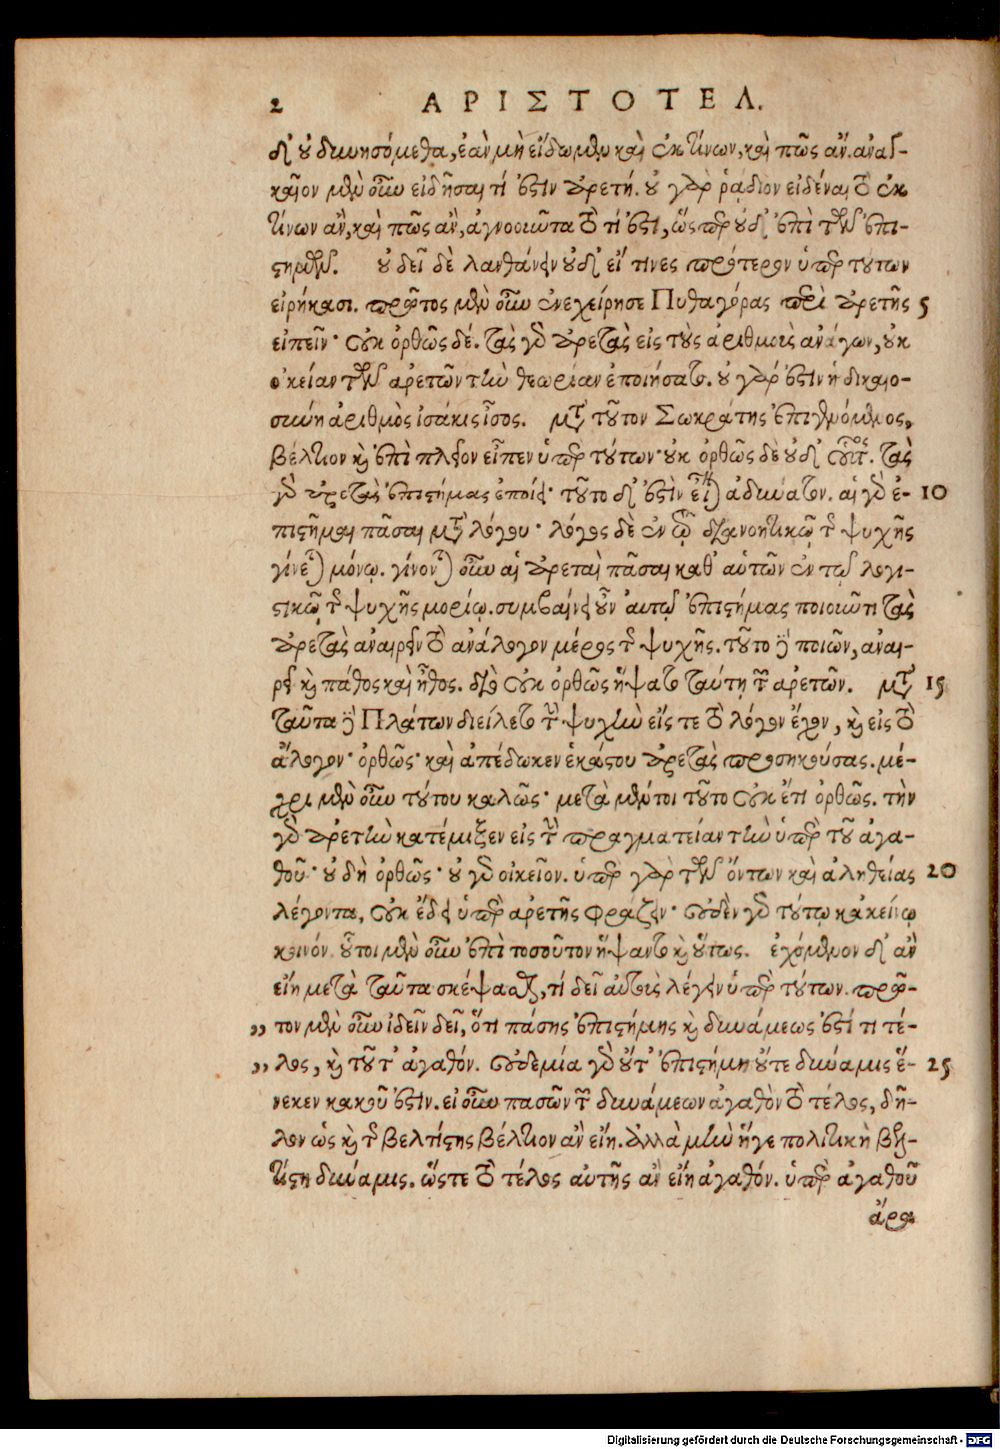 2 ΑΡΙΣΤΟΤΕΛ.
δ' οὐ δυνησόμεθα, ἐὰν μὴ εἴδωμεν καὶ ἐκ τίνων, καὶ πῶς ἄν. ἀναγ-
καῖον μὲν οὖν εἰδῆσαι τί ἐστὶν ἀρετή. οὐ γὰρ ῥᾴδιον εἰδέναι τὸ ἐκ
τίνων ἂν, καὶ πῶς ἂν, ἀγνοοῦντα τὸ τί ἐστι, ὥσπερ οὐδ' ἐπὶ τῶν ἐπι-
στημῶν. οὐ δεῖ δὲ λανθάνειν οὐδ' εἴ τινες πρότερον ὑπὲρ τούτων
εἰρήκασι. πρῶτος μὲν οὖν ἐνεχείρησε Πυθαγόρας περὶ ἀρετῆς 5
εἰπεῖν· οὐκ ὀρθῶς δέ. τὰς γὰρ ἀρετὰς εἰς τοὺς ἀριθμοὺς ἀνάγων, οὐκ
οἰκείαν τῶν ἀρετῶν τὴν θεωρίαν ἐποιήσατο. οὐ γάρ ἐστιν ἡ δικαιο-
σύνη ἀριθμὸς ἰσάκις ἶσος. μετὰ τοῦτον Σωκράτης ἐπιγενόμενος,
βέλτιον καὶ ἐπὶ πλεῖον εἶπεν ὑπὲρ τούτων· οὐκ ὀρθῶς δὲ οὐδ' οὗτος. τὰς
γὰρ ἀρετὰς ἐπιστήμας ἐποίει· τοῦτο δ' ἐστὶν εἶναι ἀδύνατον. αἱ γὰρ ἐ- 10
πιστῆμαι πᾶσαι μετὰ λόγου· λόγος δὲ ἐν τῷ διανοητικῷ τῆς ψυχῆς
γίνεται μόνῳ. γίνονται οὖν αἱ ἀρεταὶ πᾶσαι καθ' αὑτῶν ἐν τῷ λογι-
στικῷ τῆς ψυχῆς μορίῳ. συμβαίνει οὖν αὐτῷ ἐπιστήμας ποιοῦντι τὰς
ἀρετὰς ἀναιρεῖν τὸ ἀνάλογον μέρος τῆς ψυχῆς. τοῦτο δὲ ποιῶν, ἀναι-
ρεῖ καὶ πάθος καὶ ἦθος. διὸ οὐκ ὀρθῶς ἥψατο ταύτῃ τῶν ἀρετῶν. μετὰ 15
ταῦτα δὲ Πλάτων διείλετο τὴν ψυχὴν εἴς τε τὸ λόγον ἔχον, καὶ εἰς τὸ
ἄλογον· ὀρθῶς· καὶ ἀπέδωκεν ἑκάστου ἀρετὰς προσηκούσας. μέ-
χρι μὲν οὖν τούτου καλῶς· μετὰ μέντοι τοῦτο οὐκ ἔτι ὀρθῶς. τὴν
γὰρ ἀρετὴν κατέμιξεν εἰς τὴν πραγματείαν τὴν ὑπὲρ τοῦ ἀγα-
θοῦ· οὐ δὴ ὀρθῶς· οὐ γὰρ οἰκεῖον. ὑπὲρ γὰρ τῶν ὄντων καὶ ἀληθείας 20
λέγοντα, οὐκ ἔδει ὑπὲρ ἀρετῆς φράζειν· οὐδὲν γὰρ τούτῳ κἀκείνῳ
κοινόν. οὗτοι μὲν οὖν ἐπὶ τοσοῦτον ἥψαντο καὶ οὕτως. ἐχόμενον δ' ἂν
εἴη μετὰ ταῦτα σκέψασθαι, τί δεῖ αὐτοὺς λέγειν ὑπὲρ τούτων. πρῶ-
„ τον μὲν οὖν ἰδεῖν δεῖ, ὅτι πάσης ἐπιστήμης καὶ δυνάμεως ἐστί τι τέ-
„ λος, καὶ τοῦτ' ἀγαθόν. οὐδεμία γὰρ οὔτ' ἐπιστήμη οὔτε δύναμις ἕ- 25
νεκεν κακοῦ ἐστιν. εἰ οὖν πασῶν τῶν δυνάμεων ἀγαθὸν τὸ τέλος, δῆ-
λον ὡς καὶ τῆς βελτίστης βέλτιον ἂν εἴη. ἀλλὰ μὴν ἥγε πολιτικὴ βελ-
τίστη δύναμις. ὥστε τὸ τέλος αὐτῆς ἂν εἴη ἀγαθόν. ὑπὲρ ἀγαθοῦ
ἄρα
Digitalisierung gefördert durch die Deutsche Forschungsgemeinschaft - DFG